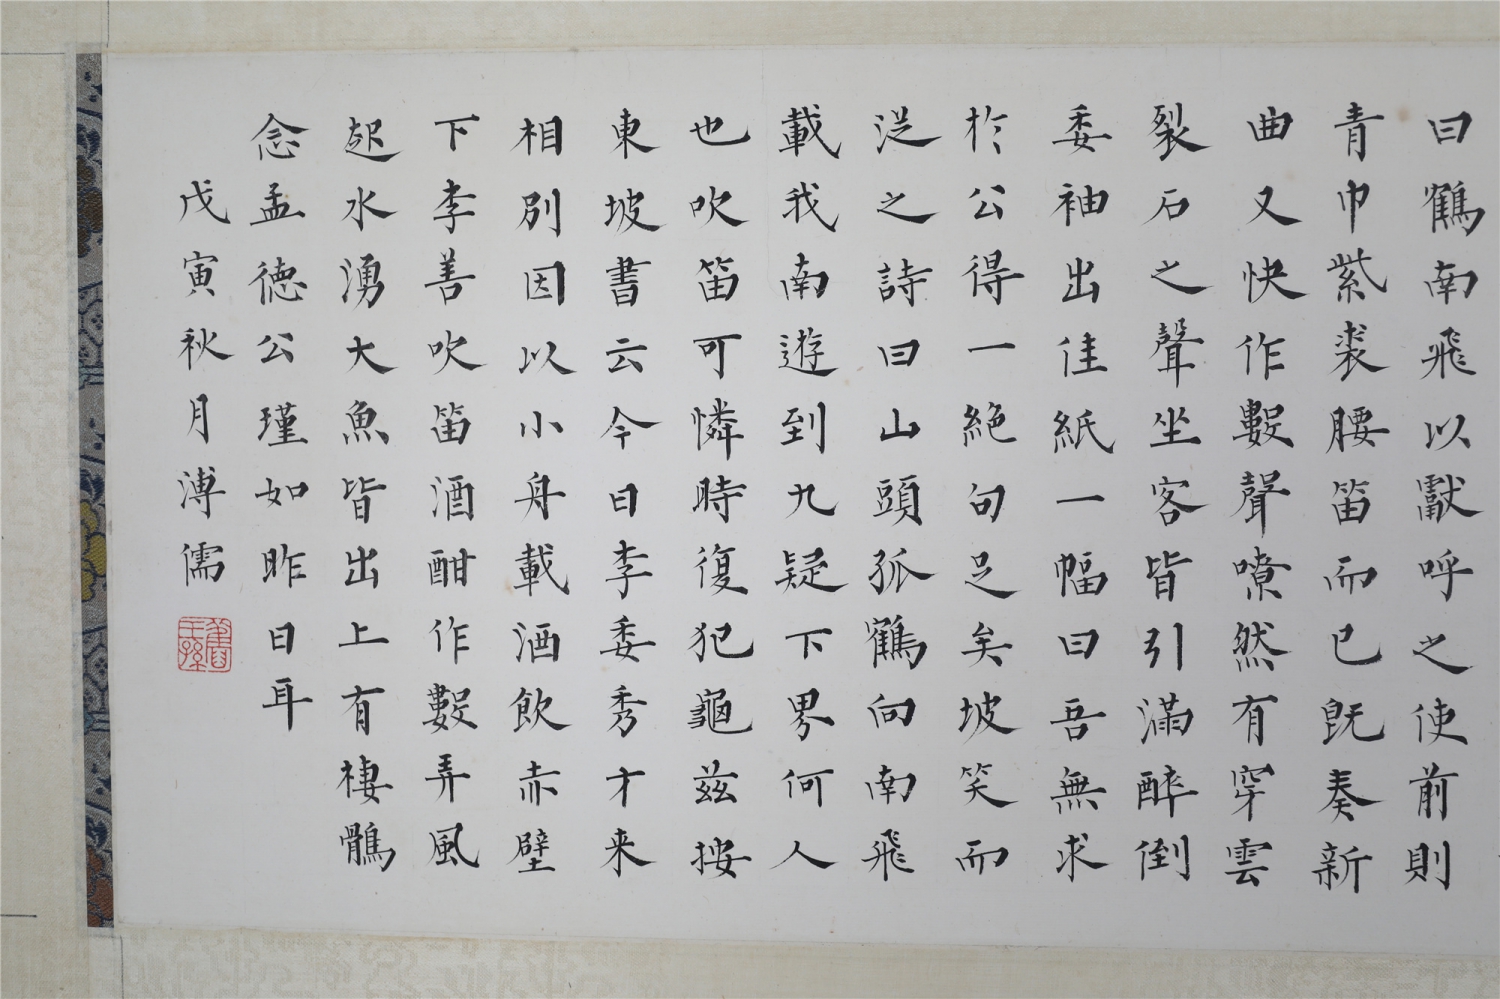 曰鶴南飛以獻呼之使前則
青巾紫裘腰笛而已既奏新
曲又快作數聲嘹然有穿雲
裂石之聲坐客皆引滿醉倒
委袖出佳紙一幅曰吾無求
於公得一絶句足矣坡笑而
從之詩曰山頭孤鶴向南飛
載我南遊到九疑下界何人
也吹笛可憐時復犯龜茲按
東坡書云今日李委秀才来
相別因以小舟載酒飲赤壁
下李善吹笛酒酣作數弄風
起水湧大魚皆出上有棲鶻
念孟德公瑾如昨日耳
戊寅秋月溥儒
舊王孫